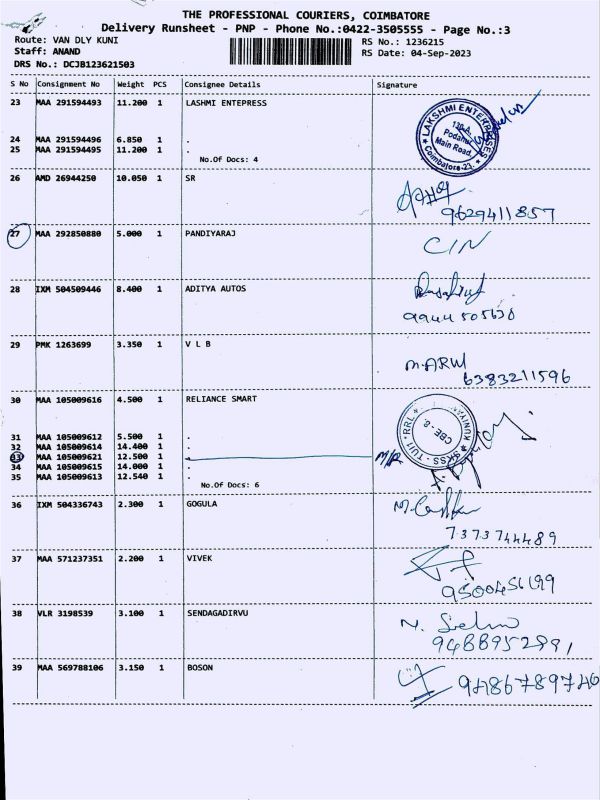 THE PROFESSIONAL COURIERS, COIMBATORE
Delivery Runsheet - PNP - Phone No.:0422-3505555 - Page No.:3
Route: VAN DLY KUNI
Staff: ANAND
DRS No.: DCJB123621503
RS No.: 1236215
RS Date: 04-Sep-2023
S No Consignment No Weight PCS Consignee Details Signature
23 MAA 291594493 11.200 1 LASHMI ENTEPRESS
LAKSHMI ENTERPRISES
Main Road,
Coimbatore-23.
24 MAA 291594496 6.850 1 .
25 MAA 291594495 11.200 1 .
No.Of Docs: 4
26 AMD 26944250 10.050 1 SR
9629411857
27 MAA 292850880 5.000 1 PANDIYARAJ
C/N
28 IXM 504509446 8.400 1 ADITYA AUTOS
9944505630
29 PMK 1263699 3.350 1 V L B
M.ARUL
6383211596
30 MAA 105009616 4.500 1 RELIANCE SMART
31 MAA 105009612 5.500 1 .
32 MAA 105009614 14.400 1 .
33 MAA 105009621 12.500 1 . M/R
34 MAA 105009615 14.000 1 .
35 MAA 105009613 12.540 1 .
No.Of Docs: 6
36 IXM 504336743 2.300 1 GOGULA
7373744489
37 MAA 571237351 2.200 1 VIVEK
38 VLR 3198539 3.100 1 SENDAGADIRVU
39 MAA 569788106 3.150 1 BOSON
9486789740